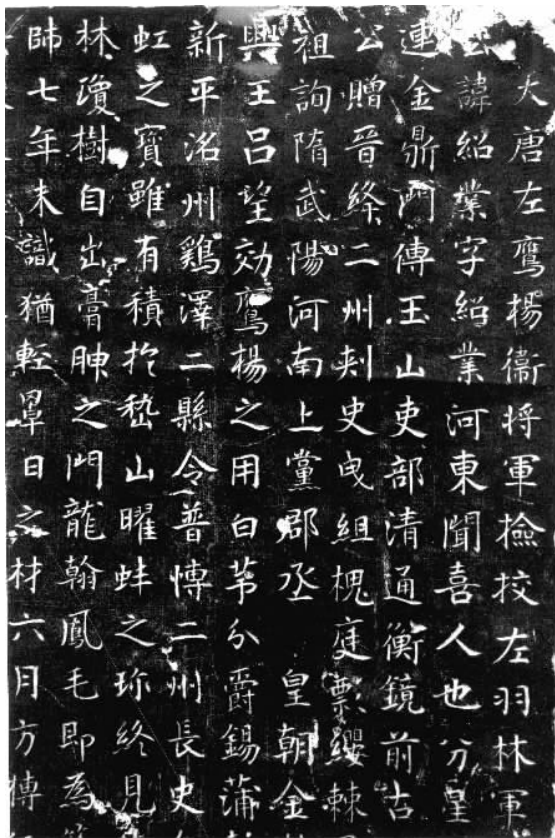 大唐左鷹楊衞将軍撿挍左羽林軍
諱紹業字紹業河東聞喜人也分皇
連金鼎門傳玉山吏部清通衡鏡前古
公贈晉絳二州刾史曳組槐庭飄纓棘
祖詢隋武陽河南上黨郡丞 皇朝金
興王吕望効鷹楊之用白茅分爵錫蒲
新平洺州鷄澤二縣令普慱二州長史
虹之寳雖有積扵嵇山曜蚌之珎終見
林瓊樹自出膏腴之門龍翰鳳毛即為
師七年未識猶輕睪日之材六月方慱